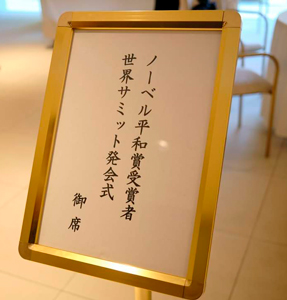 ノーベル平和賞受賞者
世界サミット発会式
御席